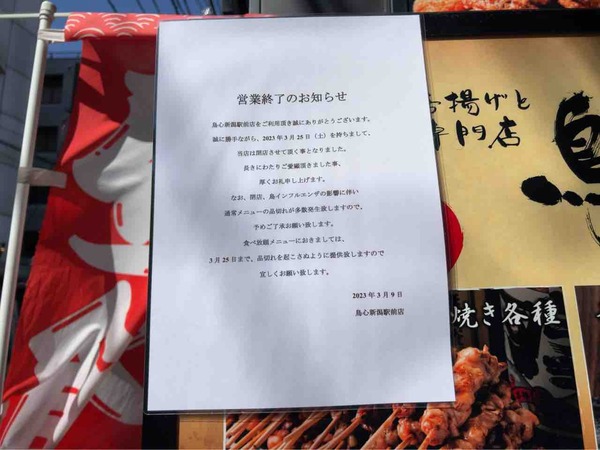 営業終了のお知らせ
鳥心新潟駅前店をご利用頂き誠にありがとうございます。
誠に勝手ながら、2023年3月25日（土）を持ちまして、
当店は閉店させて頂く事となりました。
長きにわたりご愛顧頂きました事、
厚くお礼申し上げます。
なお、閉店、鳥インフルエンザの影響に伴い
通常メニューの品切れが多数発生致しますので、
予めご了承お願い致します。
食べ放題メニューにおきましては、
3月25日まで、品切れを起こさぬように提供致しますので
宜しくお願い致します。
2023年3月9日
鳥心新潟駅前店
揚げと
専門店
鳥
焼き各種